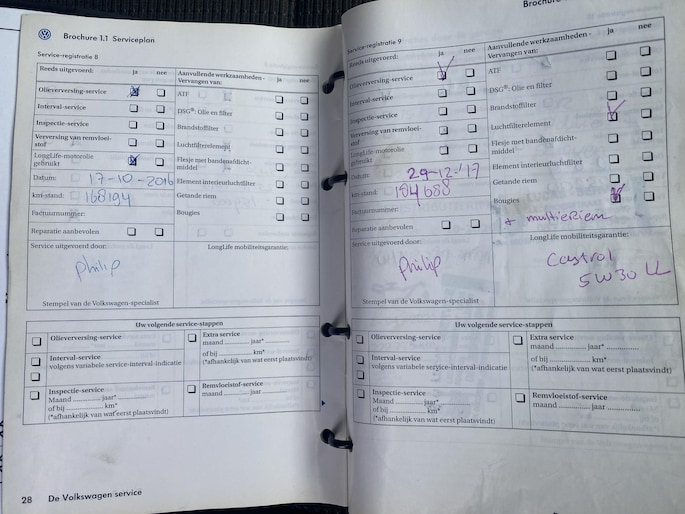 Brochure 1.1 Serviceplan
Service-registratie 8
Reeds uitgevoerd: ja nee
Olieverversing-service
Interval-service
Inspectie-service
Verversing van remvloei-
stof
LongLife-motorolie
gebruikt
Datum: 17-10-2016
km-stand: 168194
Factuurnummer:
Reparatie aanbevolen
Service uitgevoerd door:
Philip
Stempel van de Volkswagen-specialist
Aanvullende werkzaamheden - ja nee
Vervangen van:
ATF
DSG®: Olie en filter
Brandstoffilter
Luchtfilterelement
Flesje met bandenafdicht-
middel
Element interieurluchtfilter
Getande riem
Bougies
LongLife mobiliteitsgarantie:
Uw volgende service-stappen
Olieverversing-service
Interval-service
volgens variabele service-interval-indicatie
Inspectie-service
Maand ............ jaar*
of bij ............ km*
(*afhankelijk van wat eerst plaatsvindt)
Extra service
maand ............ jaar*
of bij ............ km*
(*afhankelijk van wat eerst plaatsvindt)
Remvloeistof-service
maand ............ jaar ............
28 De Volkswagen service
Brochure
Service-registratie 9
Reeds uitgevoerd: ja nee
Olieverversing-service
Interval-service
Inspectie-service
Verversing van remvloei-
stof
LongLife-motorolie
gebruikt
Datum: 29-12-'17
km-stand: 184688
Factuurnummer:
Reparatie aanbevolen
Service uitgevoerd door:
Philip
Stempel van de Volkswagen-specialist
Aanvullende werkzaamheden - ja nee
Vervangen van:
ATF
DSG®: Olie en filter
Brandstoffilter
Luchtfilterelement
Flesje met bandenafdicht-
middel
Element interieurluchtfilter
Getande riem
Bougies
+ multieriem
LongLife mobiliteitsgarantie:
Castrol
5W30 LL
Uw volgende service-stappen
Olieverversing-service
Interval-service
volgens variabele service-interval-indicatie
Inspectie-service
Maand ............ jaar*
of bij ............ km*
(*afhankelijk van wat eerst plaatsvindt)
Extra service
maand ............ jaar*
of bij ............ km*
(*afhankelijk van wat eerst plaatsvindt)
Remvloeistof-service
maand ............ jaar ............